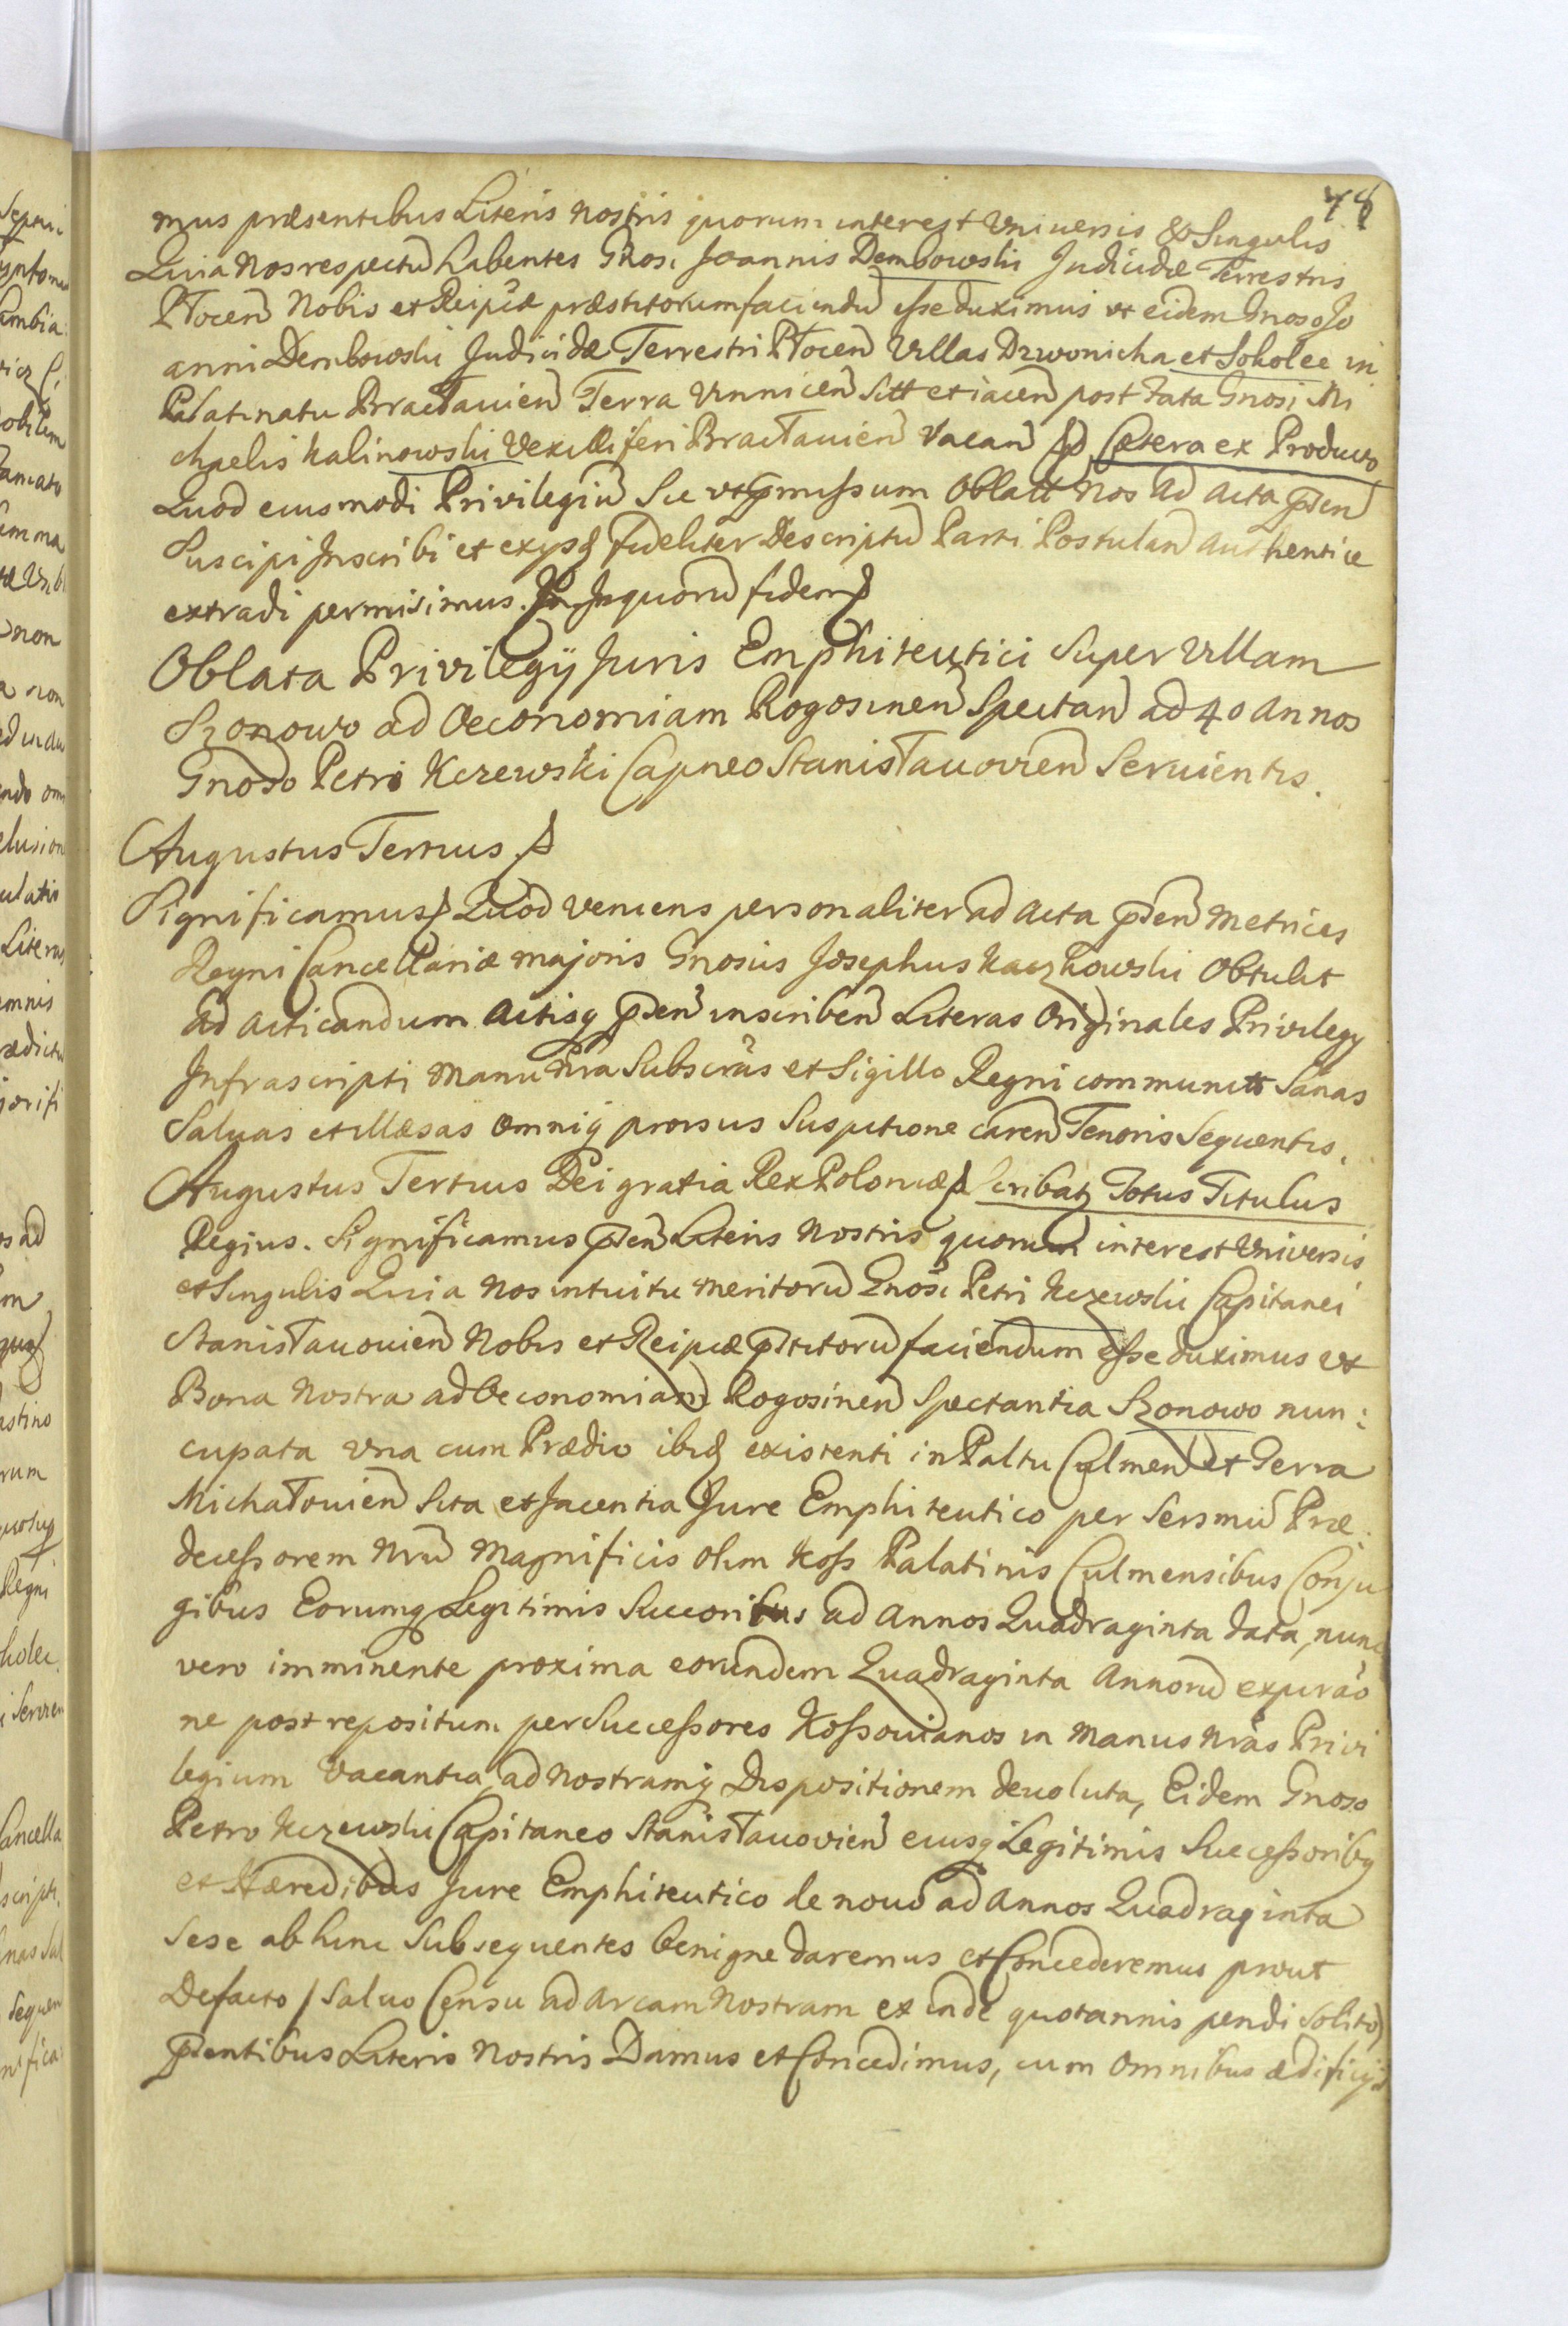 78
mus præsentibus Literis Nostris quorum interest Vniuersis & Singulis
Quia Nos respectũ habentes Gnosi Joannis Dembowski Judicidæ Terrestris
Płocen̄ Nobis et Reipcæ præstitorum faciendũ esse duximus vt eidem Gnoso Jo
anni Dembowski Judicidæ Terrestri Płocen̄ Villas Dzwonicha et Sokolec in
Palatinatu Bracłauien̄ Terra Vinnicen̄ Sitt et iacen̄ post Fata Gnosi Mi
chaelis Kalinowski Vexilliferi Bracłauien̄ Vacan̄ Cætera ex Producto
Quod eiusmodi Privilegiũ Sic vt p̄missum Oblatt Nos ad Acta p̄sen̄
Suscipi Inscribi et exijsq fideliter Descriptũ Parti Postulan̄ authentice
extradi permisimus. In quorũ fidem
Oblata Privilegÿ Juris Emphiteutici Super Villam
Szonowo ad Oeconomiam Rogosinen̄ Spectan̄ ad 40 Annos
Gnoso Petro Kczewski Capneo Stanisłauovien̄ Seruientis.
Augustus Tertius
Significamus Quod veniens personaliter ad Acta p̄sen̄ Metrices
Regni Cancellariæ majoris Gnosus Josephus Kaczkowski Obtulit
ad acticandum Actisq p̄sen̄ inscriben̄ Literas Originales Privilegÿ
Infrascripti Manu Nr̃a Subscrãs et Sigillo Regni communitt Sanas
Saluas et illæsas omniq prorsus Suspitione caren̄ Tenoris Sequentis.
Augustus Tertius Dei gratia Rex Poloniæ Scribatz Totus Titulus
Regius. Significamus p̄sen̄ Literis Nostris quorum interest Vniversis
et Singulis Quia Nos intuitu meritorũ Gnosi Petri Kczewski Capitanei
Stanisłauouien̄ Nobis et Reipcæ p̄stitorũ faciendum esse duximus vt
Bona Nostra ad Oeconomiam Rogosinen̄ Spectantia Szonowo nun:
cupata vna cum Prædio ibidq existenti in Paltu Culmen̄ et Terra
Michałouien̄ Sita et Jacentia Jure Emphiteutico per Sersmũ Præ
decessorem Nrũ Magnificis olim Koss Palatinis Culmensibus Conju
gibus Eorumq Legitimis Succoribus ad Annos Quadraginta data, nunc
vero imminente proxima eorundem Quadraginta Annorũ expirão
ne post repositum per Successores Kossouianos in Manus Nrãs Privi
legium Vacantia, ad Nostramq Dispositionem deuoluta, Eidem Gnoso
Petro Kczewski Capitaneo Stanisłauovien̄ eiusq Legitimis Successoribq
et Hæredibus Jure Emphiteutico de nouo ad Annos Quadraginta
Sese ab hinc Subsequentes benigne daremus et Concederemus prout
De facto / Saluo Censu ad Arcam Nostram ex inde quotannis pendi Solito)
p̄sentibus Literis Nostris Damus et Concedimus, cum Omnibus ædificijs